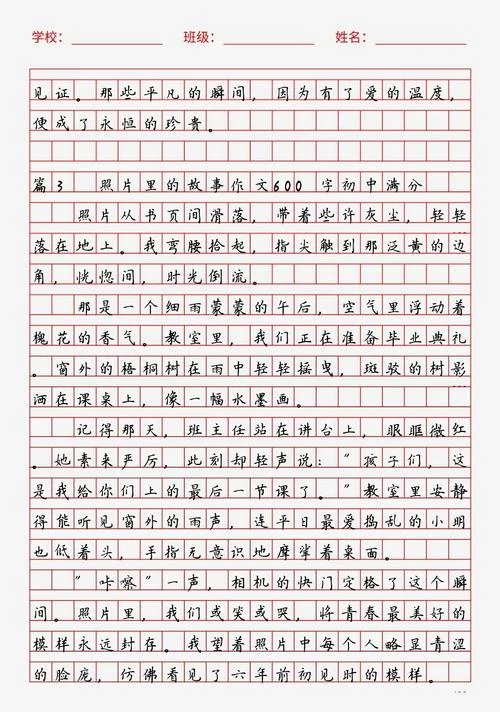 学校： 班级： 姓名：
见证。那些平凡的瞬间，因为有了爱的温度，
便成了永恒的珍贵。
篇3 照片里的故事作文600 字初中满分
照片从书页间滑落，带着些许灰尘，轻轻
落在地上。我弯腰拾起，指尖触到那泛黄的边
角，恍惚间，时光倒流。
那是一个细雨蒙蒙的午后，空气里浮动着
槐花的香气。教室里，我们正在准备毕业典礼
。窗外的梧桐树在雨中轻轻摇曳，斑驳的树影
洒在课桌上，像一幅水墨画。
记得那天，班主任站在讲台上，眼眶微红
。她素来严厉，此刻却轻声说："孩子们，这
是我给你们上的最后一节课了。"教室里安静
得能听见窗外的雨声，连平日最爱捣乱的小明
也低着头，手指无意识地摩挲着桌面。
"咔嚓"一声，相机的快门定格了这个瞬
间。照片里，我们或笑或哭，将青春最美好的
模样永远封存。我望着照片中每个人略显青涩
的脸庞，仿佛看见了六年前初见时的模样。